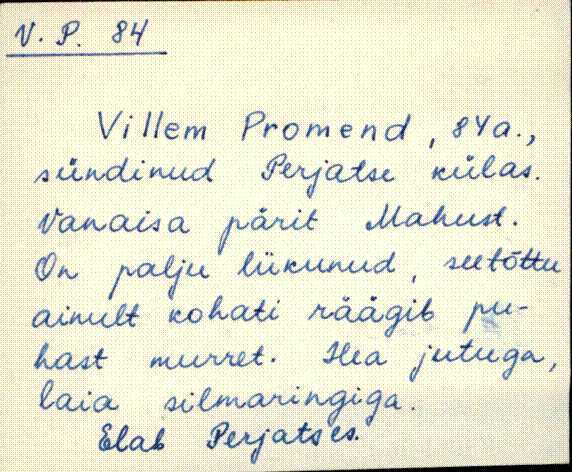 V. P. 84
Villem Promend, 84 a.,
sündinud Perjatse külas.
Vanaisa pärit Mahust.
On palju liikunud, seetõttu
ainult kohati räägib pu-
hast murret. Hea jutuga,
laia silmaringiga.
Elab Perjatses.